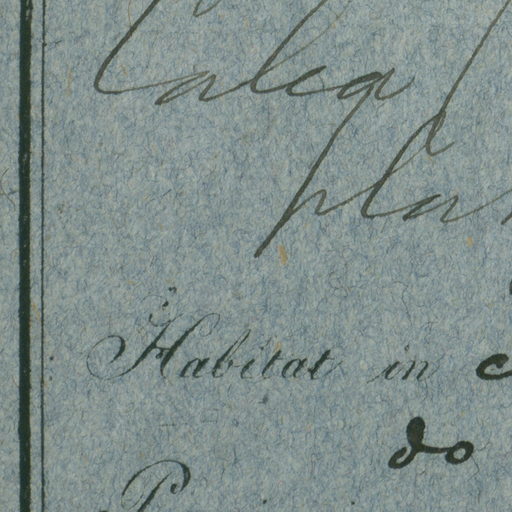 Calea
pla
Habitat in c
do
P